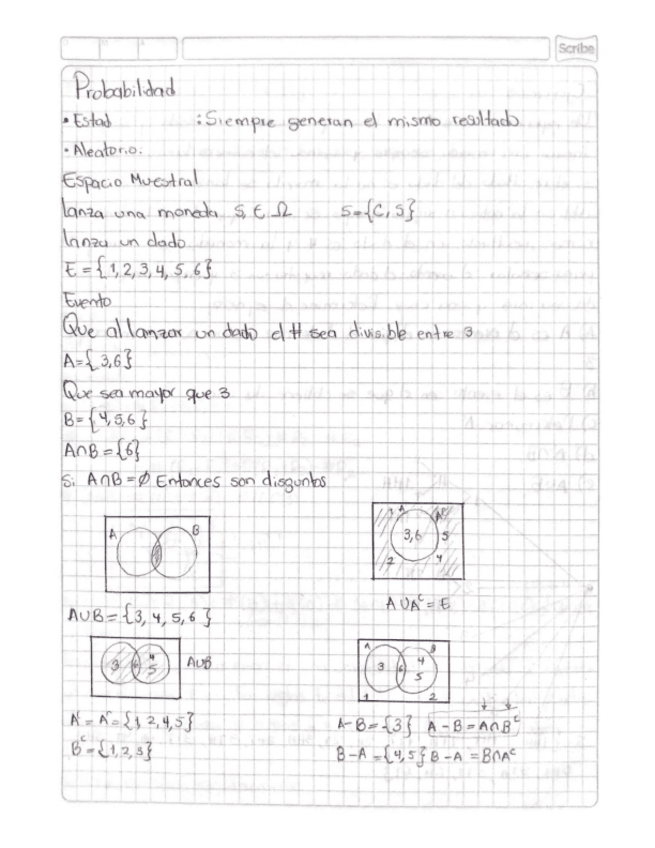 Scribe
Probabilidad
• Estad : Siempre generan el mismo resultado
• Aleatorio:
Espacio Muestral
lanza una moneda S, E, Ω S={C, S}
lanza un dado
E = {1, 2, 3, 4, 5, 6}
Evento
Que al lanzar un dado el # sea divisible entre 3
A={3,6}
Que sea mayor que 3
B={4,5,6}
A∩B={6}
Si A∩B=∅ Entonces son disguntos
A B
1 A Aᶜ
3,6 5
2 4
A∪Aᶜ=E
A∪B={3, 4, 5, 6}
3 6 4 5 A∪B
A B
3 6 4 5
1 2
A'=Aᶜ={1, 2, 4, 5}
Bᶜ={1,2,3}
A-B={3} A-B=A∩Bᶜ
B-A={4,5} B-A=B∩Aᶜ